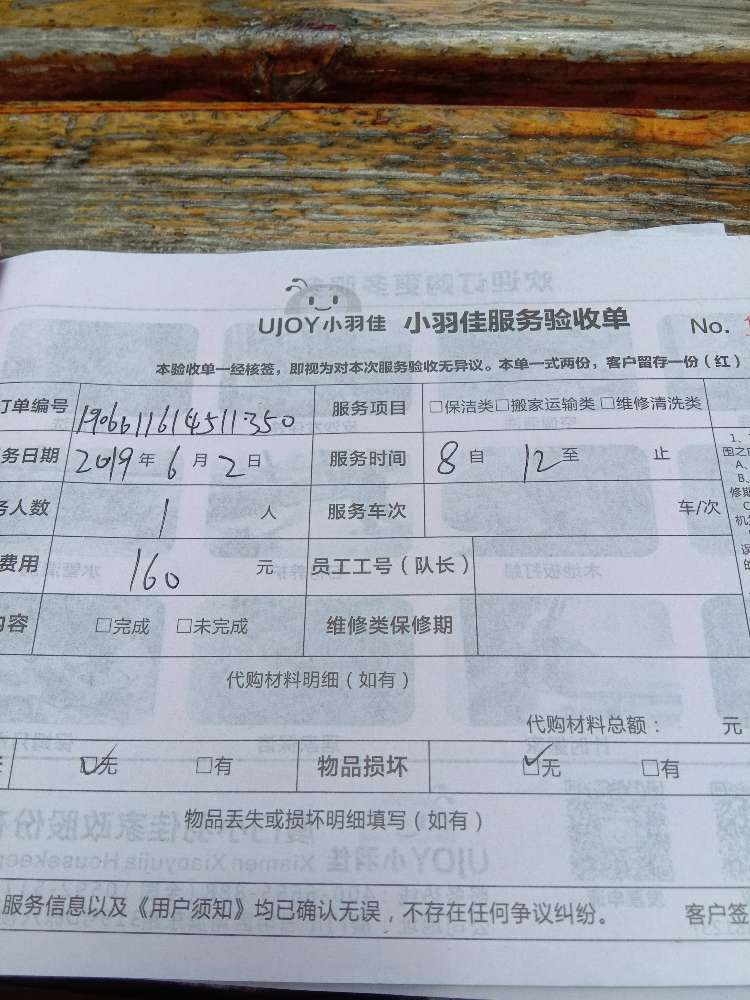 UJOY小羽佳 小羽佳服务验收单 No.
本验收单一经核签，即视为对本次服务验收无异议。本单一式两份，客户留存一份（红）
订单编号 1906011614511350 服务项目 □保洁类□搬家运输类□维修清洗类
务日期 2019年6月2日 服务时间 8自 12至 止
务人数 1 人 服务车次 车/次
费用 160 元 员工工号（队长）
内容 □完成 □未完成 维修类保修期
代购材料明细（如有）
代购材料总额： 元
☑无 □有 物品损坏 ☑无 □有
物品丢失或损坏明细填写（如有）
服务信息以及《用户须知》均已确认无误，不存在任何争议纠纷。 客户签